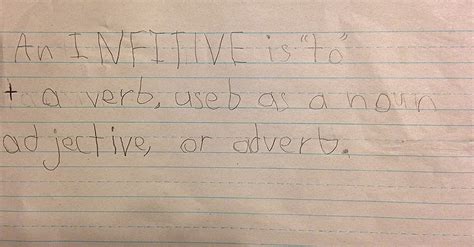 An INFITIVE is "to"
+ a verb, useb as a noun
adjective, or adverb.